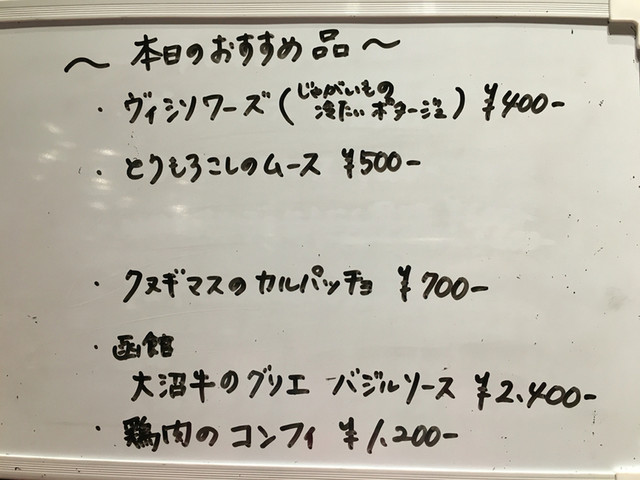 ～ 本日のおすすめ品 ～
・ヴィシソワーズ(じゃがいもの冷たいポタージュ) ¥400-
・とうもろこしのムース ¥500-
・クヌギマスのカルパッチョ ¥700-
・函館
大沼牛のグリエ バジルソース ¥2,400-
・鶏肉のコンフィ ¥1,200-